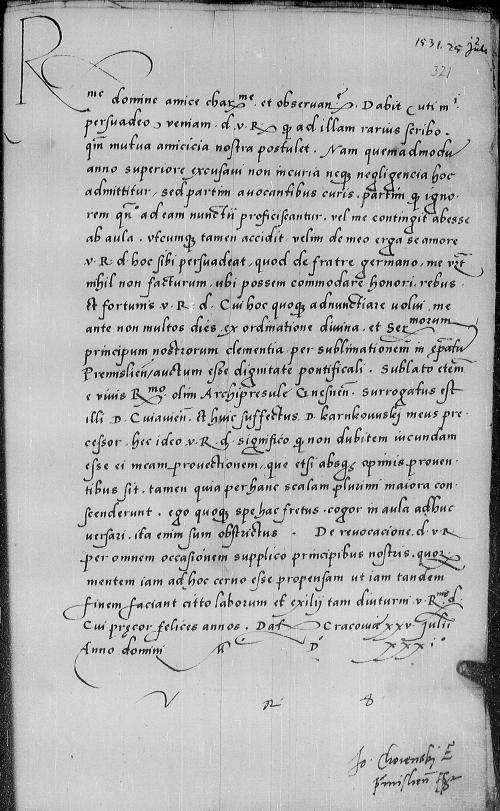 1531. 25 Julii
321
Rme domine amice charme. et observane. Dabit uti mi
persuadeo, veniam. d. v. R. quod ad illam rarius scribo.
qm mutua amicicia nostra postulet. Nam quemadmodu
anno superiore excusavi non incuria neq negligencia hoc
admittitur. sed partim avocantibus curis. partim q igno
rem qn ad eam nunctii proficiscantur. vel me contingit abesse
ab aula. utcumq tamen accidit. velim de meo erga se amore
v. R. d. hoc sibi persuadeat, quod de fratre germano. me
nihil non facturum. ubi possem commodare honori. rebus.
et fortunis v. R. d. Cui hoc quoq adnunctiare volui. me
ante non multos dies. ex ordinatione divina. et Sermorum
principum nostrorum clementia. per sublimationem in epatu
Premislien, auctum esse dignitate pontificali. Sublato etem
e vivis Rmo olim Archipresule Gnesnen. surrogatus est
illi D. Cuiavien. et huic suffectus D. karnkowskij meus pre
cessor. hec ideo v. R. d. significo q non dubitem iucundam
esse ei meam provectionem, que etsi absq opimis proven
tibus sit. tamen quia per hanc scalam plurimi maiora con
scenderunt. ego quoq spe hac fretus. cogor in aula adhuc
versari. ita enim sum obstrictus. De revocacione. d. v. R
per omnem occasionem supplico principibus nostris. quor
mentem iam ad hoc cerno esse propensam ut iam tandem
finem faciant citto laborum et exilij tam diuturni v. Rme d.
Cui pręcor felices annos. Dat Cracovię xxv. Julii
Anno domini M D xxxi
V R D
Jo. Choienski E
pmislien